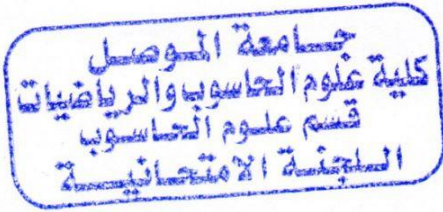 جامعة الموصل
كلية علوم الحاسوب والرياضيات
قسم علوم الحاسوب
اللجنة الامتحانية